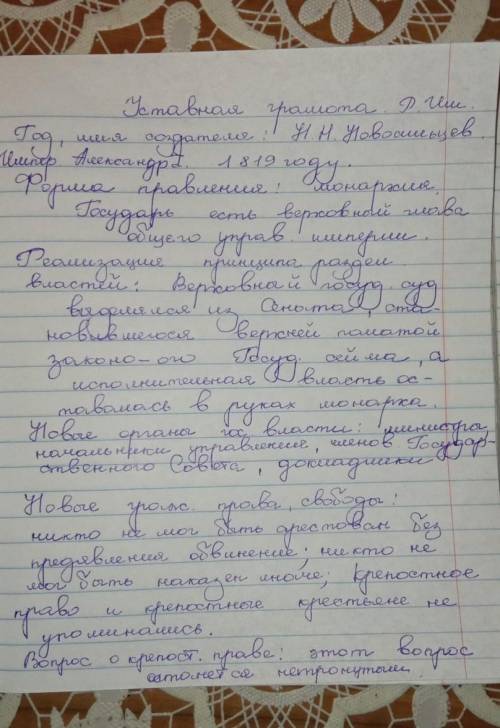 Уставная грамота Р. Им.
Год, имя создателя: Н.Н. Новосильцев.
Импер. Александр I. 1819 году.
Форма правления: монархия.
Государь есть верховный глава
общего управ. империи.
Реализация принципа раздел.
властей: Верховный госуд. суд
выделялся из Сената, ста-
новившегося верхней палатой
законо-ого Госуд. сейма, а
исполнительная власть ос-
тавалась в руках монарха.
Новые органы гос власти: министра,
начальники управление, членов Государ-
ственного Совета, докладчики
Новые граж. права, свободы:
никто не мог быть арестован без
предявления обвинение; никто не
мог быть наказен иначе; Крепостное
право и крепостные крестьяне не
упоминались.
Вопрос о крепост. праве: этот вопрос
остается нетронутым.